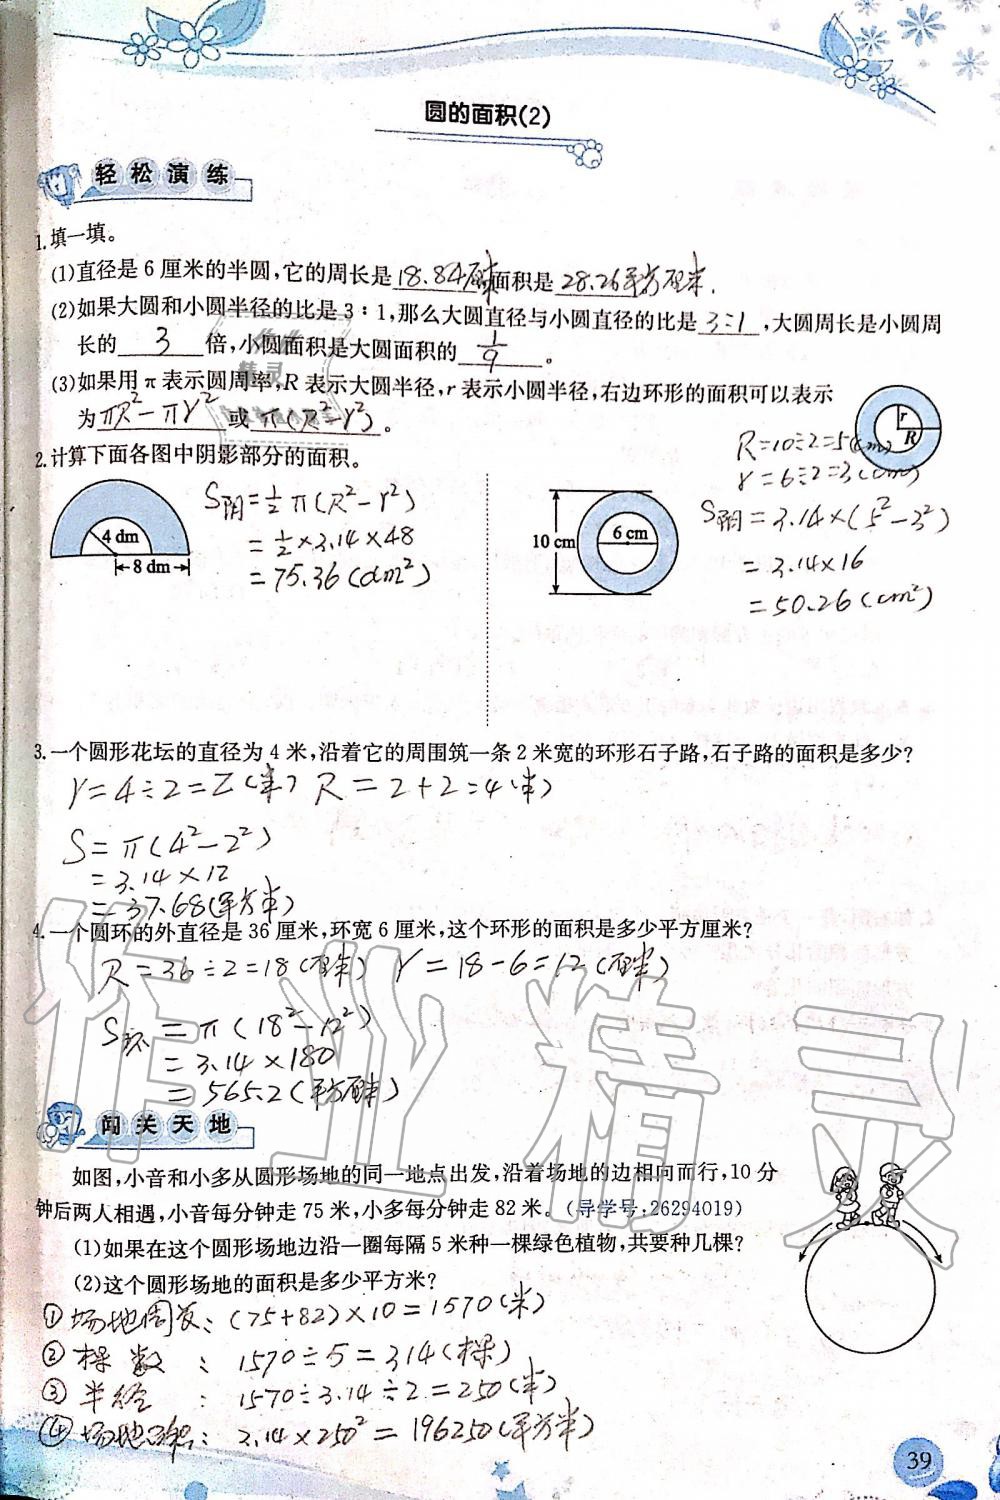 圆的面积(2)
轻松演练
1.填一填。
(1)直径是6厘米的半圆,它的周长是18.84厘米面积是28.26平方厘米.
(2)如果大圆和小圆半径的比是3∶1,那么大圆直径与小圆直径的比是3∶1,大圆周长是小圆周
长的3倍,小圆面积是大圆面积的1/9。
(3)如果用π表示圆周率,R表示大圆半径,r表示小圆半径,右边环形的面积可以表示
为πR²-πr²或π(R²-r²)。
r
R
2.计算下面各图中阴影部分的面积。
4 dm
8 dm
S阴=½π(R²-r²)
=½×3.14×48
=75.36(dm²)
10 cm
6 cm
R=10÷2=5(cm)
r=6÷2=3(cm)
S阴=3.14×(5²-3²)
=3.14×16
=50.26(cm²)
3.一个圆形花坛的直径为4米,沿着它的周围筑一条2米宽的环形石子路,石子路的面积是多少?
r=4÷2=2(米) R=2+2=4(米)
S=π(4²-2²)
=3.14×12
=37.68(平方米)
4.一个圆环的外直径是36厘米,环宽6厘米,这个环形的面积是多少平方厘米?
R=36÷2=18(厘米) r=18-6=12(厘米)
S环=π(18²-12²)
=3.14×180
=565.2(平方厘米)
闯关天地
如图,小音和小多从圆形场地的同一地点出发,沿着场地的边相向而行,10分
钟后两人相遇,小音每分钟走75米,小多每分钟走82米。(导学号:26294019)
(1)如果在这个圆形场地边沿一圈每隔5米种一棵绿色植物,共要种几棵?
(2)这个圆形场地的面积是多少平方米?
①场地周长:(75+82)×10=1570(米)
②棵数:1570÷5=314(棵)
③半径:1570÷3.14÷2=250(米)
④场地面积:3.14×250²=196250(平方米)
39
作业精灵